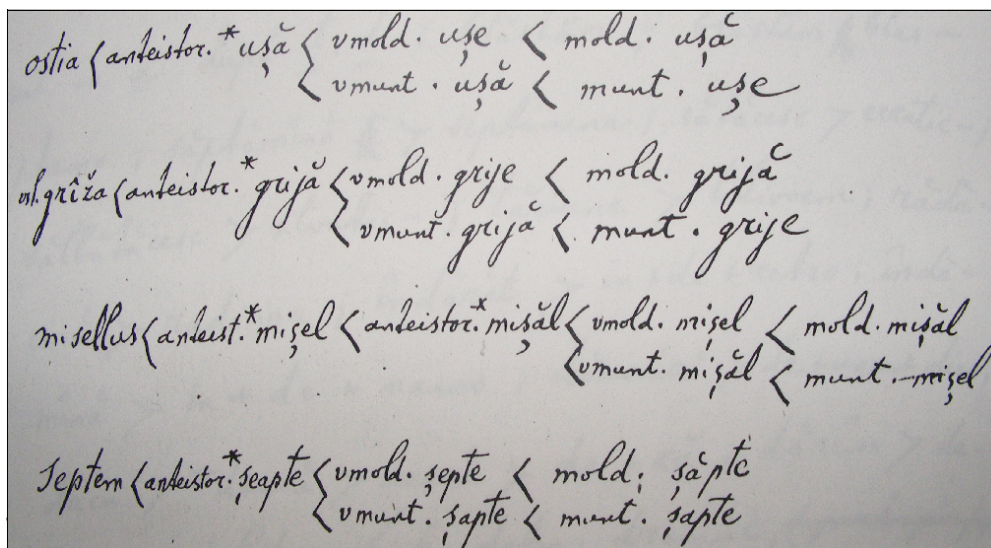 ostia < anteistor. *ușă < vmold. ușe < mold. ușă
< vmunt. ușă < munt. ușe
vsl. grîža < anteistor. *grijă < vmold. grije < mold. grijă
< vmunt. grijă < munt. grije
misellus < anteist. *mișel < anteistor. *mișăl < vmold. mișel < mold. mișăl
< vmunt. mișăl < munt. mișel
septem < anteistor. *șeapte < vmold. șepte < mold. șăpte
< vmunt. șapte < munt. șapte